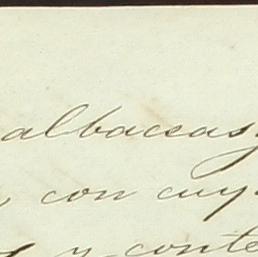 albaceas
con cuy
y conte